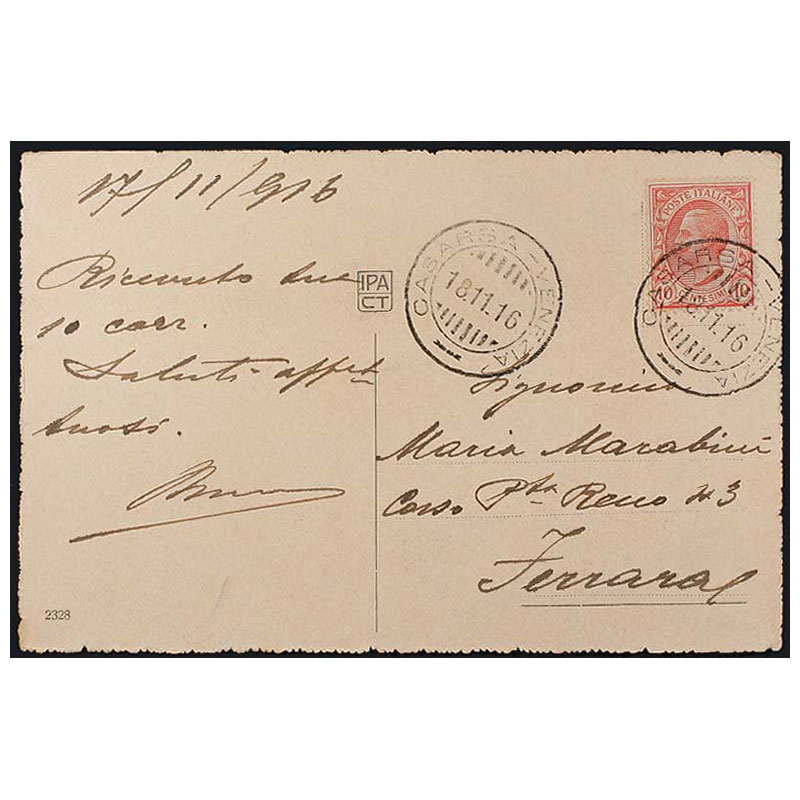 17/11/916
Ricevuto tue
10 carr.
Saluti affet
tuosi.
2328
IPA
CT
CASARSA - VENEZIA
18.11.16
POSTE ITALIANE
10 CENTESIMI 10
CASARSA - VENEZIA
18.11.16
Signorina
Maria Marabini
Corso Pta Reno 43
Ferrara